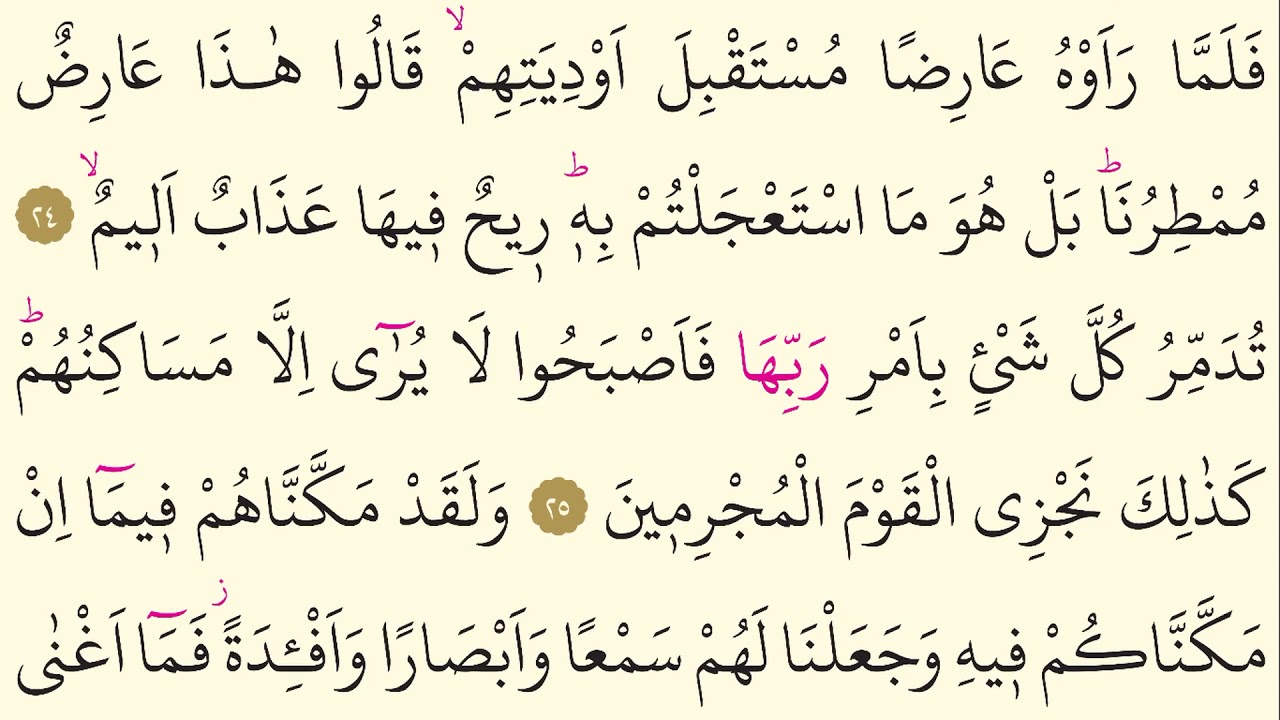 فَلَمَّا رَاَوْهُ عَارِضًا مُسْتَقْبِلَ اَوْدِيَتِهِمْۙ قَالُوا هٰذَا عَارِضٌ
مُمْطِرُنَاۜ بَلْ هُوَ مَا اسْتَعْجَلْتُمْ بِه۪ۜ ر۪يحٌ ف۪يهَا عَذَابٌ اَل۪يمٌۙ ﴿٢٤﴾
تُدَمِّرُ كُلَّ شَيْئٍ بِاَمْرِ رَبِّهَا فَاَصْبَحُوا لَا يُرٰٓى اِلَّا مَسَاكِنُهُمْۜ
كَذٰلِكَ نَجْزِى الْقَوْمَ الْمُجْرِم۪ينَ ﴿٢٥﴾ وَلَقَدْ مَكَّنَّاهُمْ ف۪يمَٓا اِنْ
مَكَّنَّاكُمْ ف۪يهِ وَجَعَلْنَا لَهُمْ سَمْعًا وَاَبْصَارًا وَاَفْـِٔدَةًۘ فَمَٓا اَغْنٰى